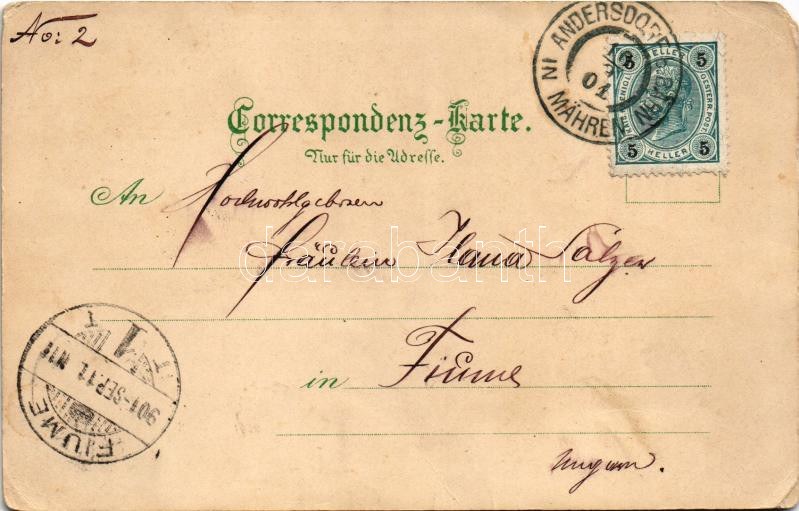 No: 2
ANDERSDORF
IN MÄHREN
01
5 HELLER 5
OESTERR. POST.
5 HELLER 5
Correspondenz-Karte.
Nur für die Adresse.
An Hochwohlgeboren
Fräulein Ilona Sálzer
darabanth
in Fiume
Ungarn.
FIUME
901 SEP. 11